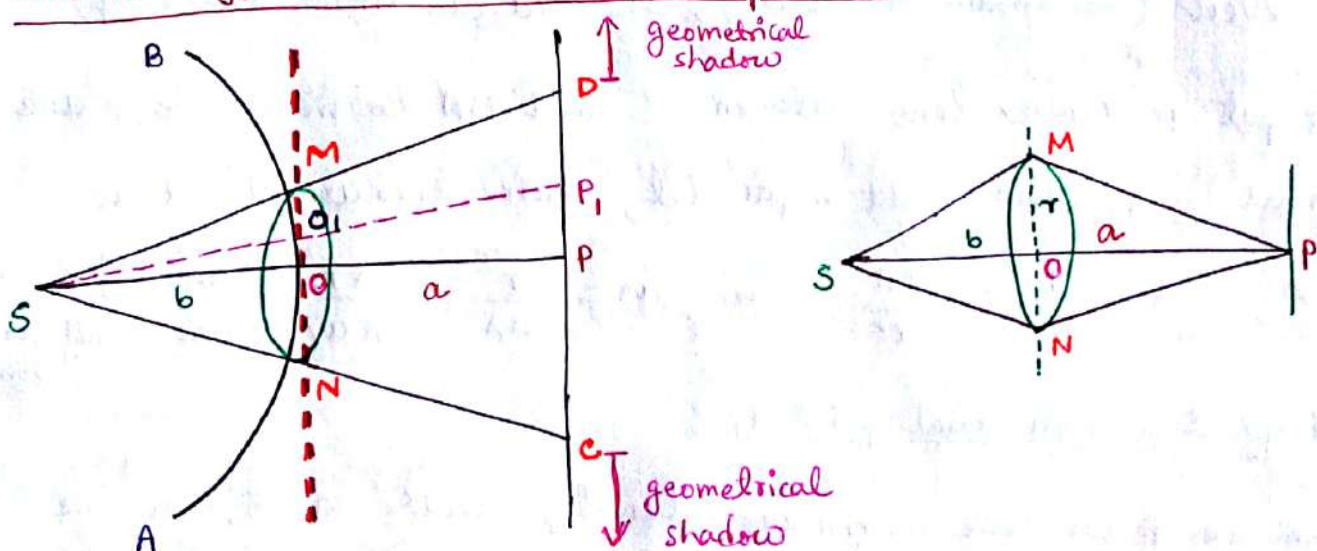 geometrical
shadow
B
D
M
P₁
O₁
S
b
O
a
P
N
C
A
geometrical
shadow
M
r
b
a
S
O
P
N